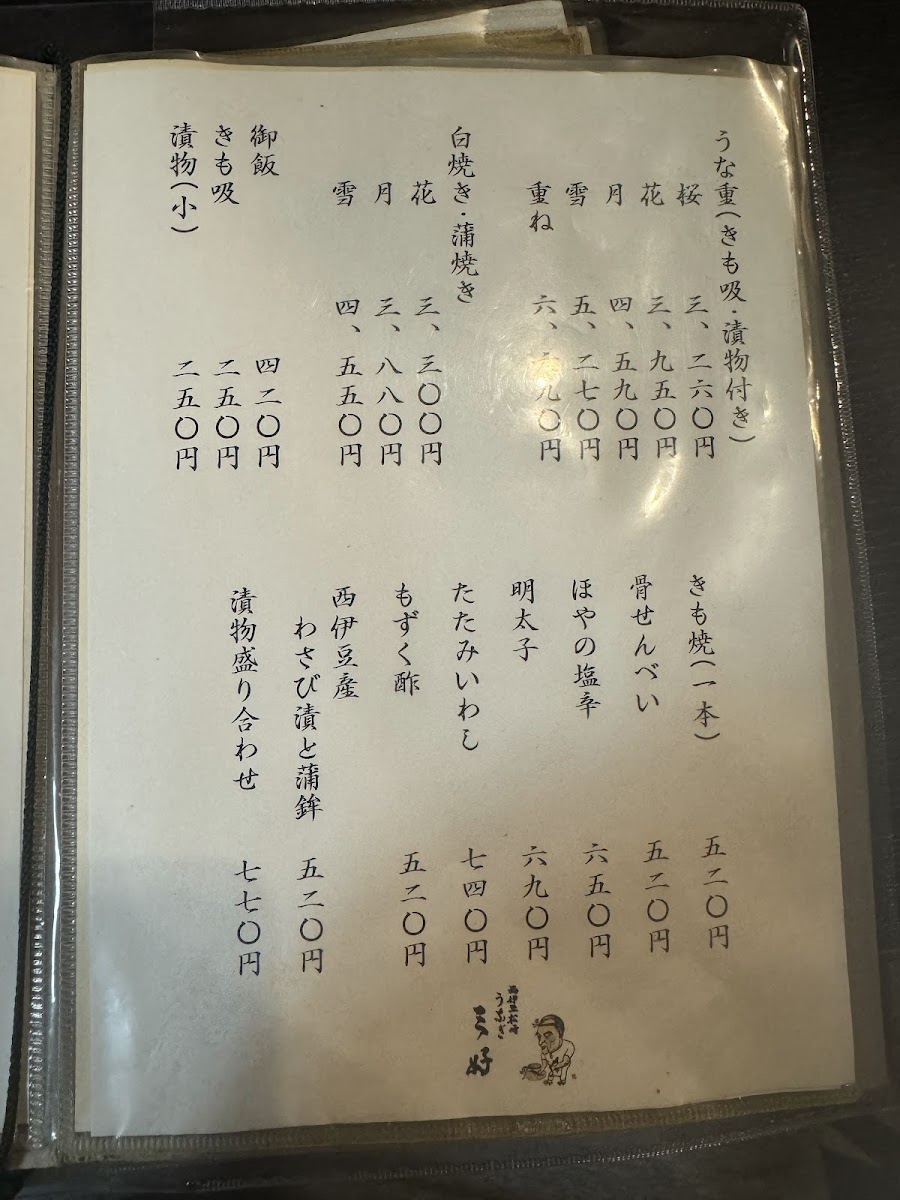 うな重(きも吸・漬物付き)
桜 三、二六〇円
花 三、九五〇円
月 四、五九〇円
雪 五、二七〇円
重ね 六、六九〇円
白焼き・蒲焼き
花 三、三〇〇円
月 三、八八〇円
雪 四、五五〇円
御飯 四二〇円
きも吸 二五〇円
漬物(小) 二五〇円
きも焼(一本) 五二〇円
骨せんべい 五二〇円
ほやの塩辛 六五〇円
明太子 六九〇円
たたみいわし 七四〇円
もずく酢 五二〇円
西伊豆産
わさび漬と蒲鉾 五二〇円
漬物盛り合わせ 七七〇円
うなぎ
三好